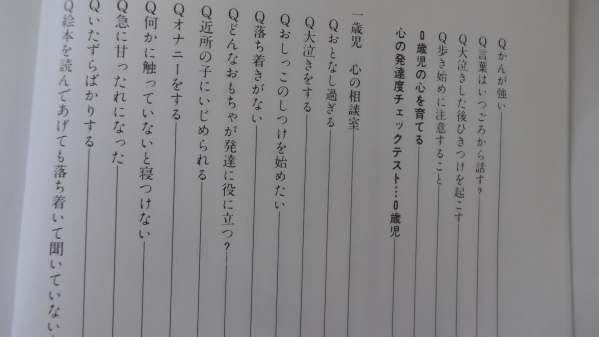 Qかんが強い
Q言葉はいつごろから話す?
Q大泣きした後ひきつけを起こす
Q歩き始めに注意すること
0歳児の心を育てる
心の発達度チェックテスト…0歳児
一歳児 心の相談室
Qおとなし過ぎる
Q大泣きをする
Qおしっこのしつけを始めたい
Q落ち着きがない
Qどんなおもちゃが発達に役に立つ?
Q近所の子にいじめられる
Qオナニーをする
Q何かに触っていないと寝つけない
Q急に甘ったれになった
Qいたずらばかりする
Q絵本を読んであげても落ち着いて聞いていない